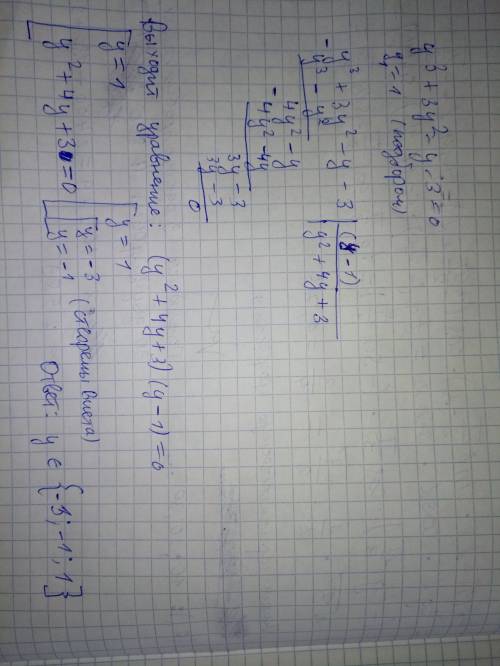 y³ + 3y² - y - 3 = 0
y = 1 (подбором)
y³ + 3y² - y - 3 | (y - 1)
- y³ - y² | y² + 4y + 3
4y² - y
- 4y² - 4y
3y - 3
3y - 3
0
Выходит уравнение: (y² + 4y + 3)(y - 1) = 0
[ y = 1
y² + 4y + 3 = 0
[ y = 1
[ y = -3
y = -1 (теоремы Виета)
Ответ: y ∈ {-3; -1; 1}